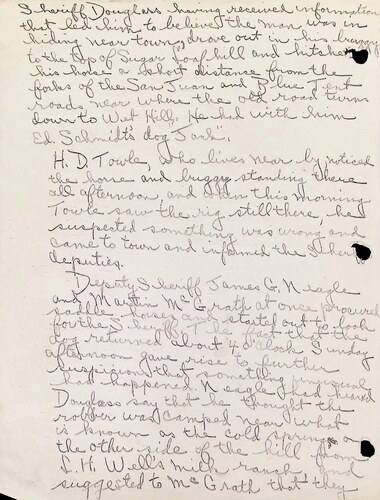 Sheriff Douglass having received information
that led him to believe the man was in
hiding near town, drove out in his buggy
to the top of Sugar Loaf hill and hitched
his horse a short distance from the
forks of the San Juan and Blue Tent
roads near where the old road turns
down to Wet Hill. He had with him
Ed. Schmidt's dog "Jack".
H. D. Towle, who lives near by noticed
the horse and buggy standing there
all afternoon, and when this morning
Towle saw the rig still there, he
suspected something was wrong and
came to town and informed the Sheriff
deputies.
Deputy Sheriff James G. Neagle
and Martin McGrath at once procured
saddle horses and started out to look
for the Sheriff. The fact that the
dog returned about 4 o'clock Sunday
afternoon gave rise to further
suspicion that something unusual
had happened. Neagle had heard
Douglass say that he thought the
robber was camped near what
is known as the cold springs on
the other side of the hill from
L. H. Wells milk ranch, and
suggested to McGrath that they